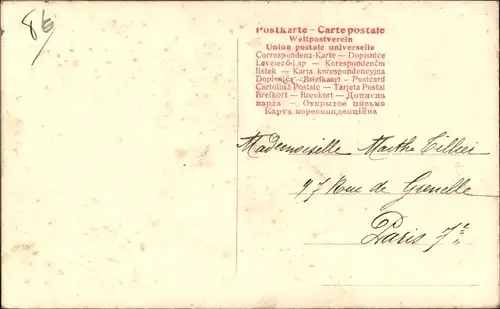 86
Postkarte – Carte postale
Weltpostverein
Union postale universelle
Correspondenz-Karte – Dopisnice
Levelező-Lap – Korespondenčni
listek – Karta korespondencyjna
Dopisnica – Briefkaart – Postcard
Cartolina Postale – Tarjeta Postal
Brefkort – Brevkort – Дописна
карта – Открытое письмо
Карта кореспонденційна
Mademoiselle Marthe Tillier
97 Rue de Grenelle
Paris 7e